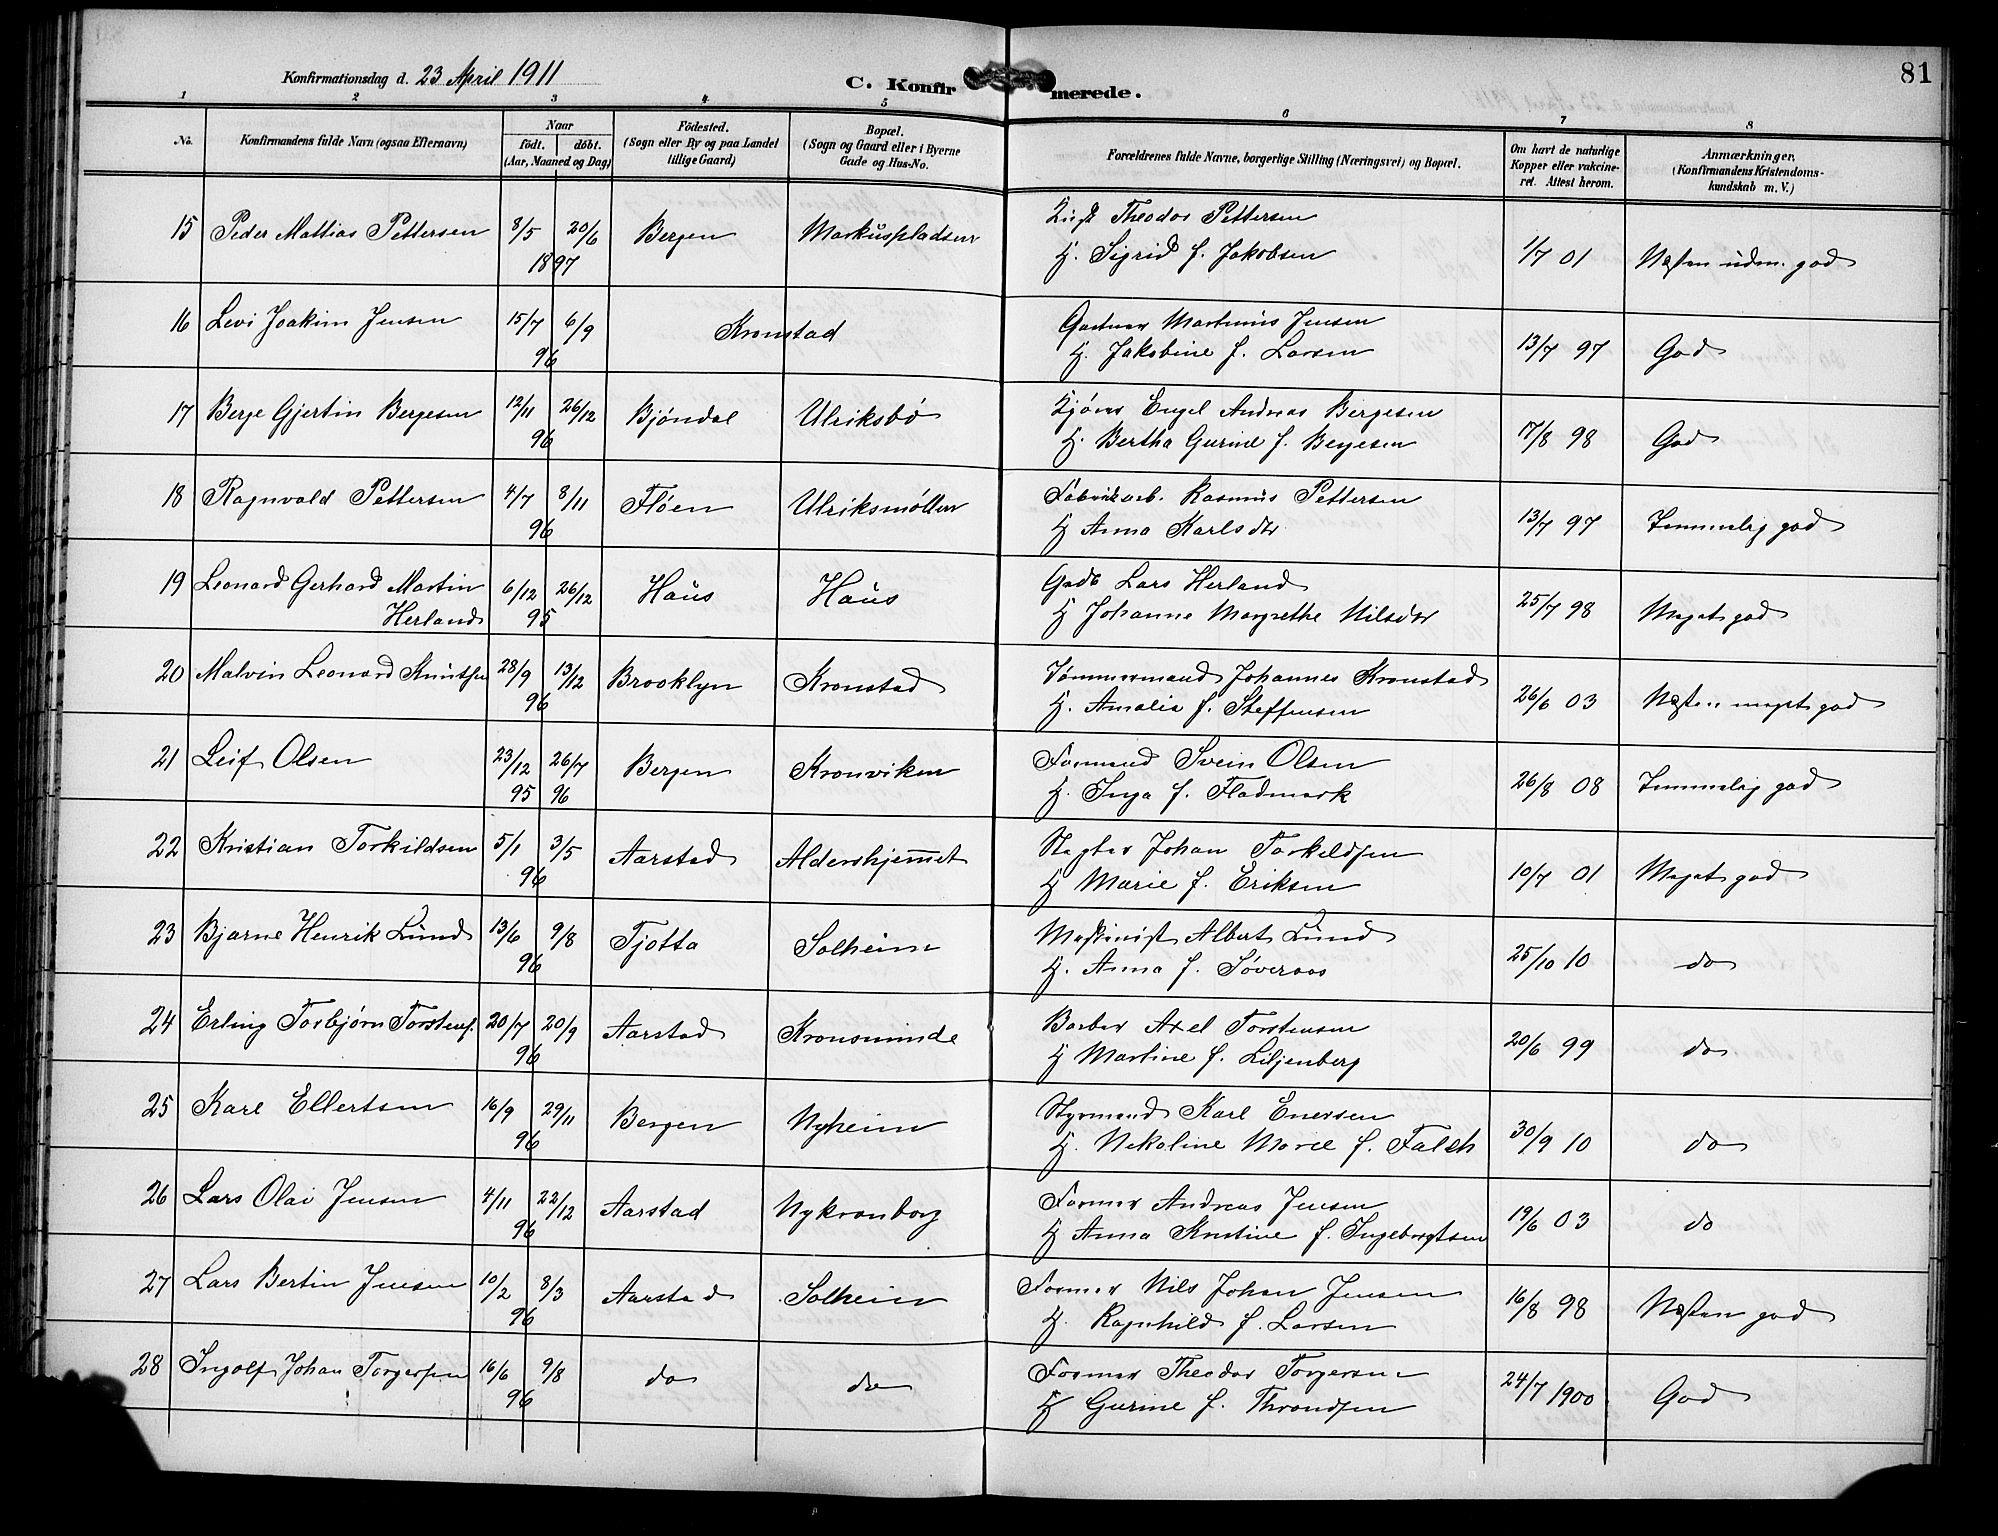 81
Konfirmationsdag d. 23 April 1911
C. Konfirmerede.
1 2 3 4 5 6 7 8
No. Konfirmandens fulde Navn (ogsaa Efternavn) Naar født. døbt. (Aar, Maaned og Dag) Fødested. (Sogn eller By og paa Landet tillige Gaard) Bopæl. (Sogn og Gaard eller i Byerne Gade og Hus-No. Forældrenes fulde Navne, borgerlige Stilling (Næringsvei) og Bopæl. Om havt de naturlige Kopper eller vakcineret. Attest herom. Anmærkninger. (Konfirmandens Kristendomskundskab m. V.)
15 Peder Mathias Pettersen 8/5 20/6 Bergen Markuspladsen Theodor Pettersen 1/7 01 Næsten udm. god
1897 H. Sigrid f. Jakobsen
16 Levi Joakim Jensen 15/7 6/9 Kronstad Gartner Martinus Jensen 13/7 97 God
96 H. Jakobine f. Larsen
17 Berge Gjertin Bergesen 12/11 26/12 Bjöndal Ulriksbø Kjører Engel Andreas Bergesen 17/8 98 God
96 H. Bertha Gurine f. Bergesen
18 Ragnvald Pettersen 4/7 8/11 Fløen Ulriksmøllen Fabrikarb. Rasmus Pettersen 13/7 97 Temmelig god
96 H Anna Karlsdtr
19 Leonard Gerhard Martin 6/12 26/12 Haus Haus Gadb Lars Herland 25/7 98 Meget god
Herland 95 H Johanne Margrethe Nilsdtr
20 Malvin Leonard Knutsen 28/9 13/12 Brooklyn Kronstad Tømmermand Johannes Kronstad 26/6 03 Næsten meget god
96 H. Amalie f. Steffensen
21 Leif Olsen 23/12 26/7 Bergen Kronviken Formand Svein Olsen 26/8 08 Temmelig god
95 96 H. Inga f. Fladmark
22 Kristian Torkildsen 5/1 3/5 Aarstad Aldershjemmet Slagter Johan Torkeldsen 10/7 01 Meget god
96 H Marie f. Eriksen
23 Bjarne Henrik Lund 13/6 9/8 Tjotta Solheim Maskinist Albert Lund 25/10 10 do
96 H. Anna f. Søveraas
24 Erling Torbjørn Torstens. 20/7 20/9 Aarstad Kronsminde Barber Axel Torstensen 20/6 99 do
96 H Martine f. Liljenberg
25 Karl Ellertsen 16/9 29/11 Bergen Nyheim Styrmand Karl Enersen 30/9 10 do
96 H. Nikoline Marie f. Falch
26 Lars Olai Jensen 4/11 22/12 Aarstad Nykronborg Former Andreas Jensen 19/6 03 do
96 H Anna Kristine f. Ingebrigtsen
27 Lars Bertin Jensen 10/2 8/3 Aarstad Solheim Former Nils Johan Jensen 16/8 98 Næsten god
96 H. Ragnhild f. Larsen
28 Ingolf Johan Torgersen 16/6 9/8 do do Former Theodor Torgersen 24/7 1900 God
96 H Gurine f. Throndsen